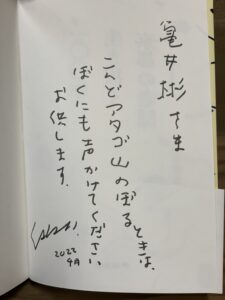 亀井彬さま
こんどアタゴ山のぼるときは、
ぼくにも声かけてください。
お供します。
2022
4月